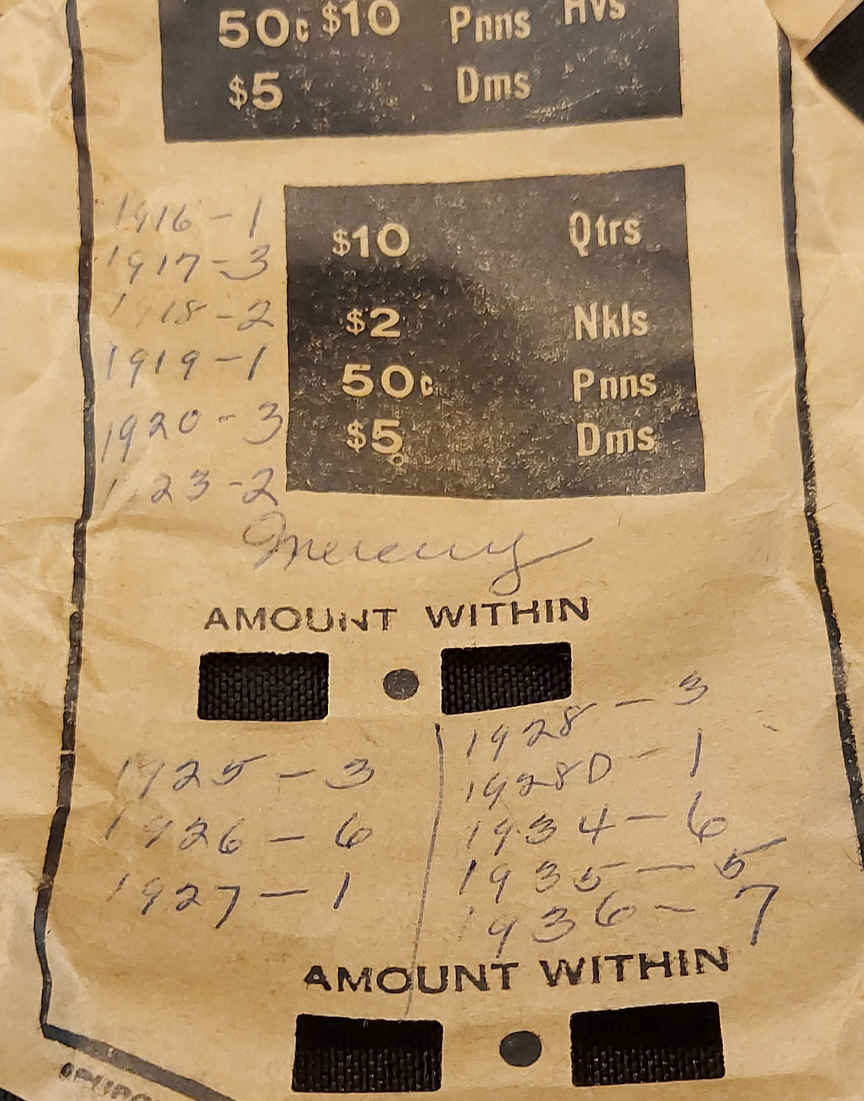 50c $10 Pnns Hvs
$5 Dms
1916 - 1
1917 - 3
1918 - 2
1919 - 1
1920 - 3
1923 - 2
$10 Qtrs
$2 Nkls
50c Pnns
$5 Dms
Mercury
AMOUNT WITHIN
1925 - 3
1926 - 6
1927 - 1
1928 - 3
1928D - 1
1934 - 6
1935 - 5
1936 - 7
AMOUNT WITHIN